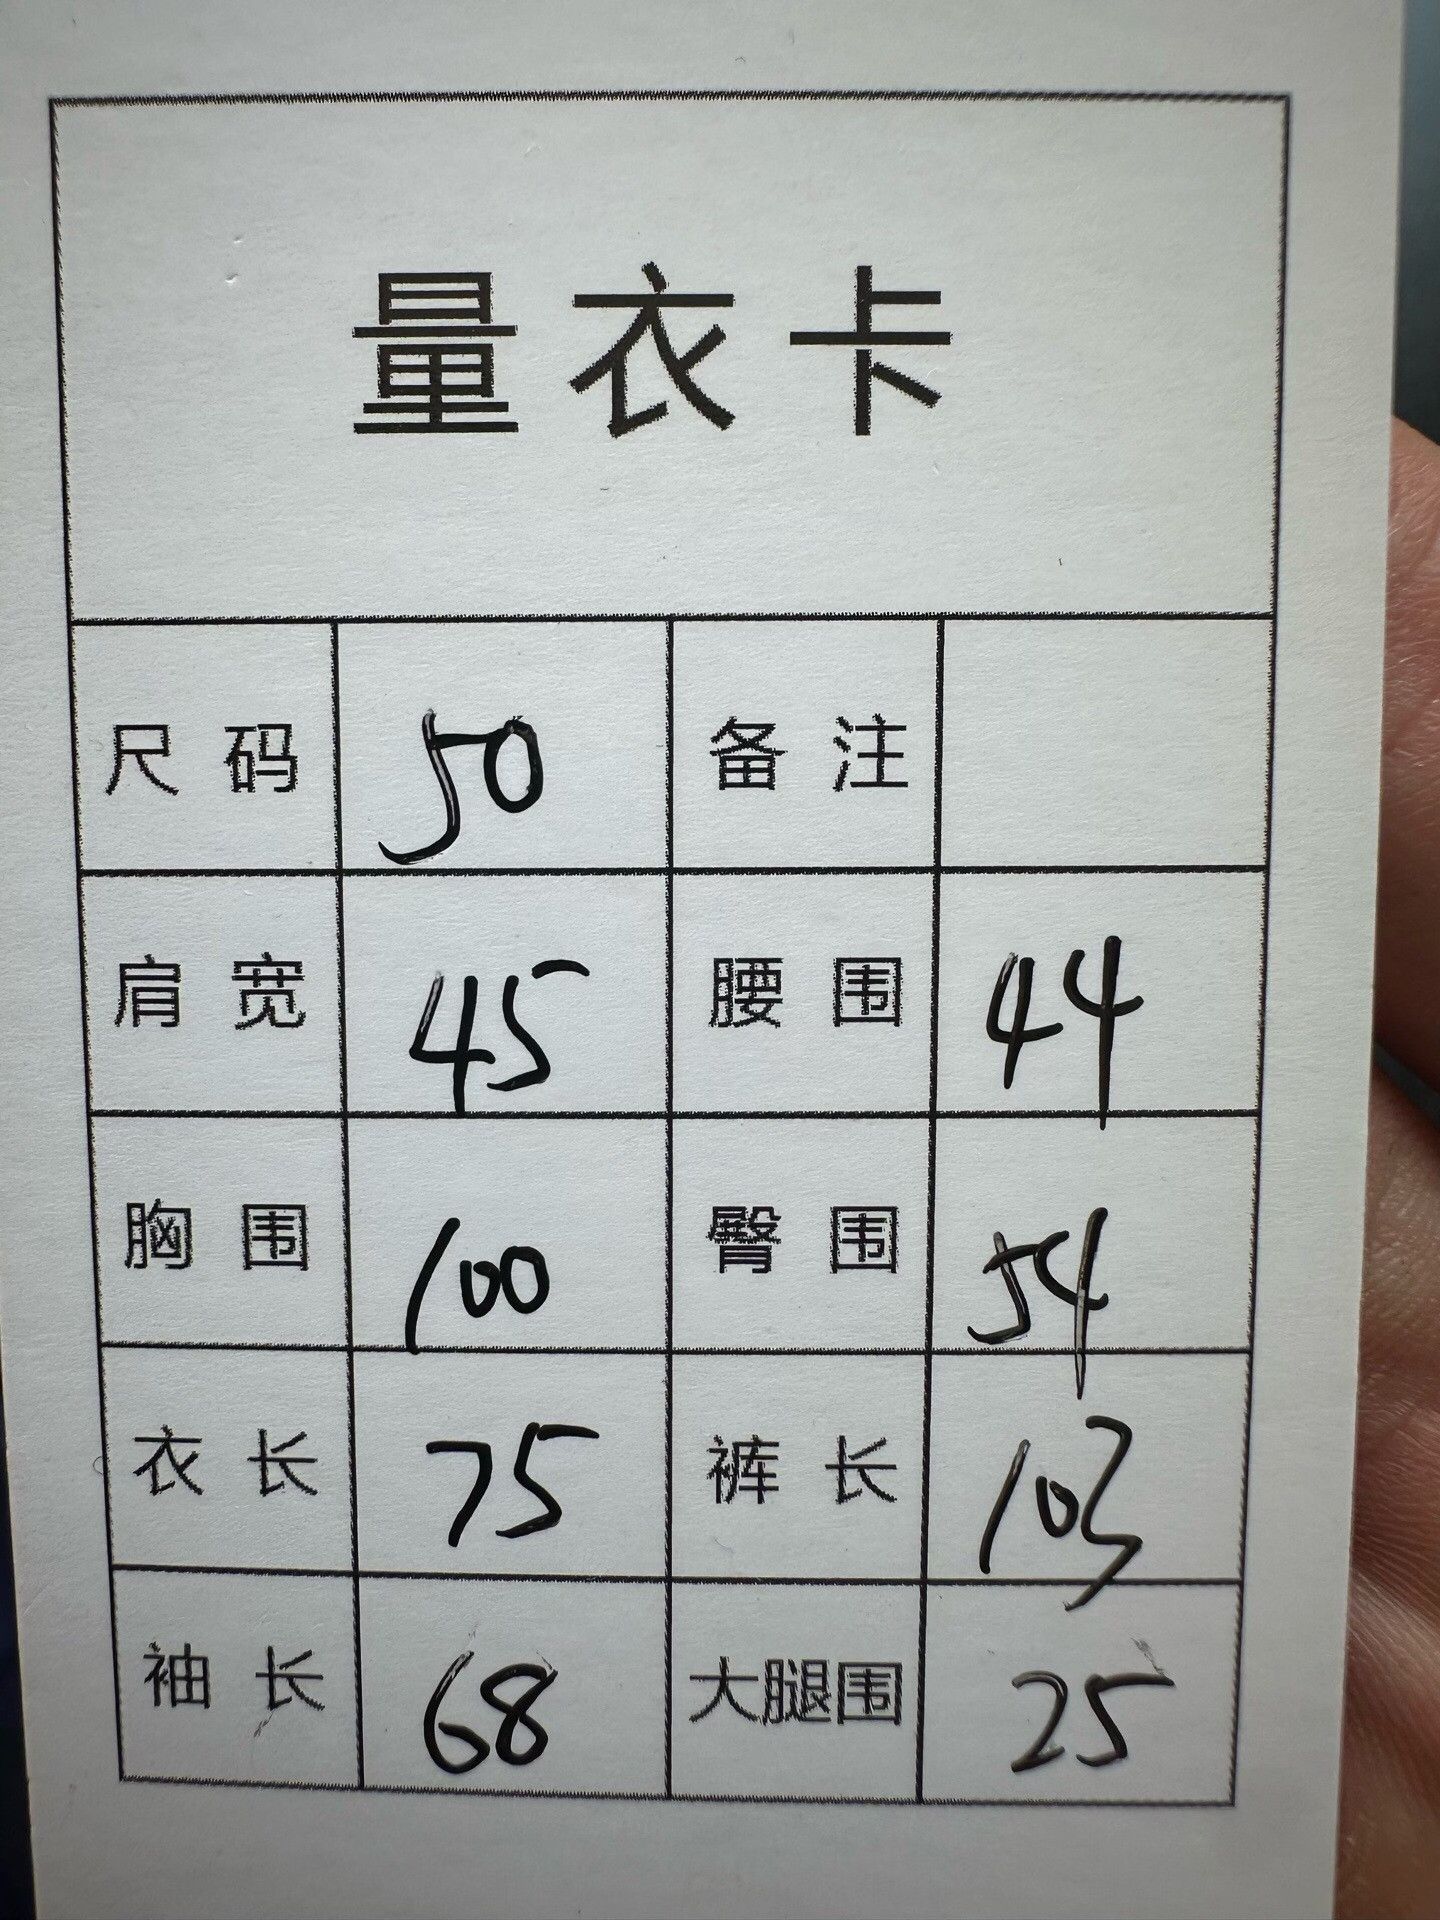 量衣卡
尺码 50 备注
肩宽 45 腰围 44
胸围 100 臀围 54
衣长 75 裤长 103
袖长 68 大腿围 25